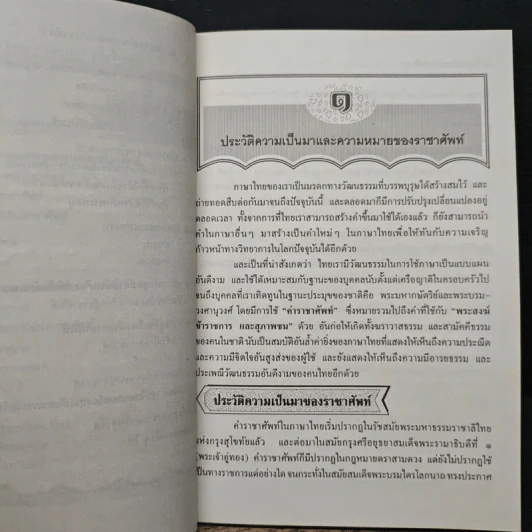 ๑
ประวัติความเป็นมาและความหมายของราชาศัพท์
ภาษาไทยของเราเป็นมรดกทางวัฒนธรรมที่บรรพบุรุษได้สร้างสมไว้ และ
ถ่ายทอดสืบต่อกันมาจนถึงปัจจุบันนี้ และตลอดมาก็มีการปรับปรุงเปลี่ยนแปลงอยู่
ตลอดเวลา ทั้งจากการที่ไทยเราสามารถสร้างคำขึ้นมาใช้ได้เองแล้ว ก็ยังสามารถนำ
คำในภาษาอื่นๆ มาสร้างเป็นคำใหม่ๆ ในภาษาไทยเพื่อให้ทันกับความเจริญ
ก้าวหน้าทางวิทยาการในโลกปัจจุบันได้อีกด้วย
และเป็นที่น่าสังเกตว่า ไทยเรามีวัฒนธรรมในการใช้ภาษาเป็นแบบแผน
อันดีงาม และใช้ได้เหมาะสมกับฐานะของบุคคลนับตั้งแต่เครือญาติในครอบครัวไป
จนถึงบุคคลที่เราเทิดทูนในฐานะประมุขของชาติคือ พระมหากษัตริย์และพระบรม-
วงศานุวงศ์ โดยมีการใช้ "คำราชาศัพท์" ซึ่งหมายรวมไปถึงคำที่ใช้กับ "พระสงฆ์
ข้าราชการ และสุภาพชน" ด้วย อันก่อให้เกิดทั้งจรรยาธรรม และสามัคคีธรรม
ของคนในชาติ นับเป็นสมบัติอันล้ำค่ายิ่งของชาติไทยที่แสดงให้เห็นถึงความประณีต
และความมีจิตใจอันสูงส่งของผู้ใช้ และยังแสดงให้เห็นถึงความมีอารยธรรม และ
ประเพณีวัฒนธรรมอันดีงามของคนไทยอีกด้วย
ประวัติความเป็นมาของราชาศัพท์
คำราชาศัพท์ในภาษาไทยเริ่มปรากฏในรัชสมัยพระมหาธรรมราชาลิไทย
แห่งกรุงสุโขทัยแล้ว และต่อมาในสมัยกรุงศรีอยุธยาสมเด็จพระรามาธิบดีที่ ๑
(พระเจ้าอู่ทอง) คำราชาศัพท์ก็มีปรากฏในกฎหมายตราสามดวง แต่ยังไม่ปรากฏใช้
เป็นทางราชการแต่อย่างใด จนกระทั่งในสมัยสมเด็จพระบรมไตรโลกนาถ ทรงประกาศ